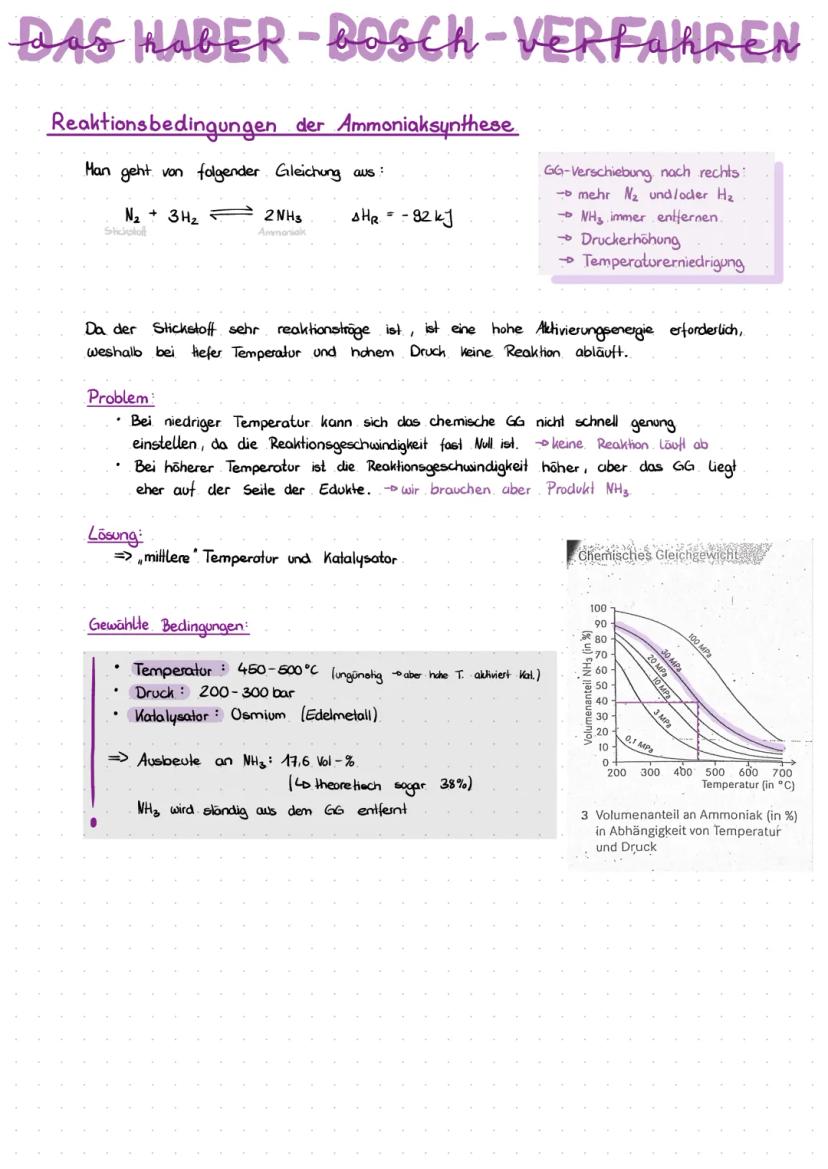 DAS HABER-BOSCH-VERFAHREN
das haber-bosch-verfahren
Reaktionsbedingungen der Ammoniaksynthese
Man geht von folgender Gleichung aus:
N₂ + 3H₂ ⇌ 2NH₃ ΔHR = -92 kJ
Stickstoff Ammoniak
GG-Verschiebung nach rechts:
→ mehr N₂ und/oder H₂
→ NH₃ immer entfernen
→ Druckerhöhung
→ Temperaturerniedrigung
Da der Stickstoff sehr reaktionsträge ist, ist eine hohe Aktivierungsenergie erforderlich,
weshalb bei tiefer Temperatur und hohem Druck keine Reaktion abläuft.
Problem:
• Bei niedriger Temperatur kann sich das chemische GG nicht schnell genung
einstellen, da die Reaktionsgeschwindigkeit fast Null ist. → keine Reaktion läuft ab
• Bei höherer Temperatur ist die Reaktionsgeschwindigkeit höher, aber das GG liegt
eher auf der Seite der Edukte. → wir brauchen aber Produkt NH₃
Lösung:
⇒ „mittlere" Temperatur und Katalysator
Gewählte Bedingungen:
• Temperatur: 450-500°C (ungünstig → aber hohe T. aktiviert Kat.)
• Druck: 200-300 bar
• Katalysator: Osmium (Edelmetall)
⇒ Ausbeute an NH₃: 17,6 Vol-%
(↳ theoretisch sogar 38%)
NH₃ wird ständig aus dem GG entfernt
Chemisches Gleichgewicht
Volumenanteil NH₃ (in %)
100
90
80
70
60
50
40
30
20
10
0
100 MPa
30 MPa
20 MPa
10 MPa
3 MPa
0,1 MPa
200 300 400 500 600 700
Temperatur (in °C)
3 Volumenanteil an Ammoniak (in %)
in Abhängigkeit von Temperatur
und Druck